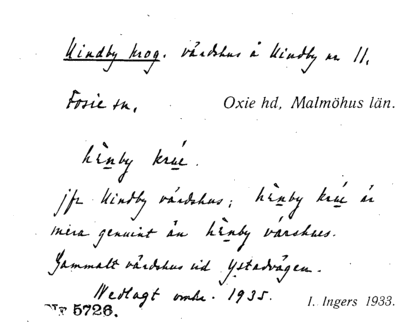 Hindby krog. värdshus å Hindby nr 11.
Fosie sn. Oxie hd, Malmöhus län.
hènby krúc.
jfr Hindby värdshus; hènby krúc är
mera genuint än hènby várshus.
Gammalt värdshus vid Ystadvägen.
Nedlagt omkr. 1935.
I. Ingers 1933.
Nr 5726.